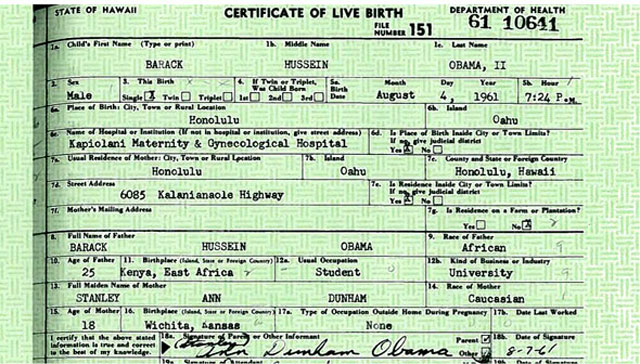 STATE OF HAWAII CERTIFICATE OF LIVE BIRTH DEPARTMENT OF HEALTH
FILE NUMBER 151 61 10641
1a. Child's First Name (Type or print) 1b. Middle Name 1c. Last Name
BARACK HUSSEIN OBAMA, II
2. Sex 3. This Birth 4. If Twin or Triplet, Was Child Born 5a. Birth Date Month Day Year 5b. Hour
Male Single X Twin Triplet 1st 2nd 3rd August 4, 1961 7:24 P.M.
6a. Place of Birth: City, Town or Rural Location 6b. Island
Honolulu Oahu
6c. Name of Hospital or Institution (If not in hospital or institution, give street address) 6d. Is Place of Birth Inside City or Town Limits? If no, give judicial district
Kapiolani Maternity & Gynecological Hospital Yes X No
7a. Usual Residence of Mother: City, Town or Rural Location 7b. Island 7c. County and State or Foreign Country
Honolulu Oahu Honolulu, Hawaii
7d. Street Address 7e. Is Residence Inside City or Town Limits? If no, give judicial district
6085 Kalanianaole Highway Yes X No
7f. Mother's Mailing Address 7g. Is Residence on a Farm or Plantation?
Yes No X
8. Full Name of Father 9. Race of Father
BARACK HUSSEIN OBAMA African 9
10. Age of Father 11. Birthplace (Island, State or Foreign Country) 12a. Usual Occupation 12b. Kind of Business or Industry
25 Kenya, East Africa Student University
13. Full Maiden Name of Mother 14. Race of Mother
STANLEY ANN DUNHAM Caucasian
15. Age of Mother 16. Birthplace (Island, State or Foreign Country) 17a. Type of Occupation Outside Home During Pregnancy 17b. Date Last Worked
18 Wichita, Kansas None
I certify that the above stated information is true and correct to the best of my knowledge. 18a. Signature of Parent or Other Informant Parent Other 18b. Date of Signature
Ann Dunham Obama 8-7-61